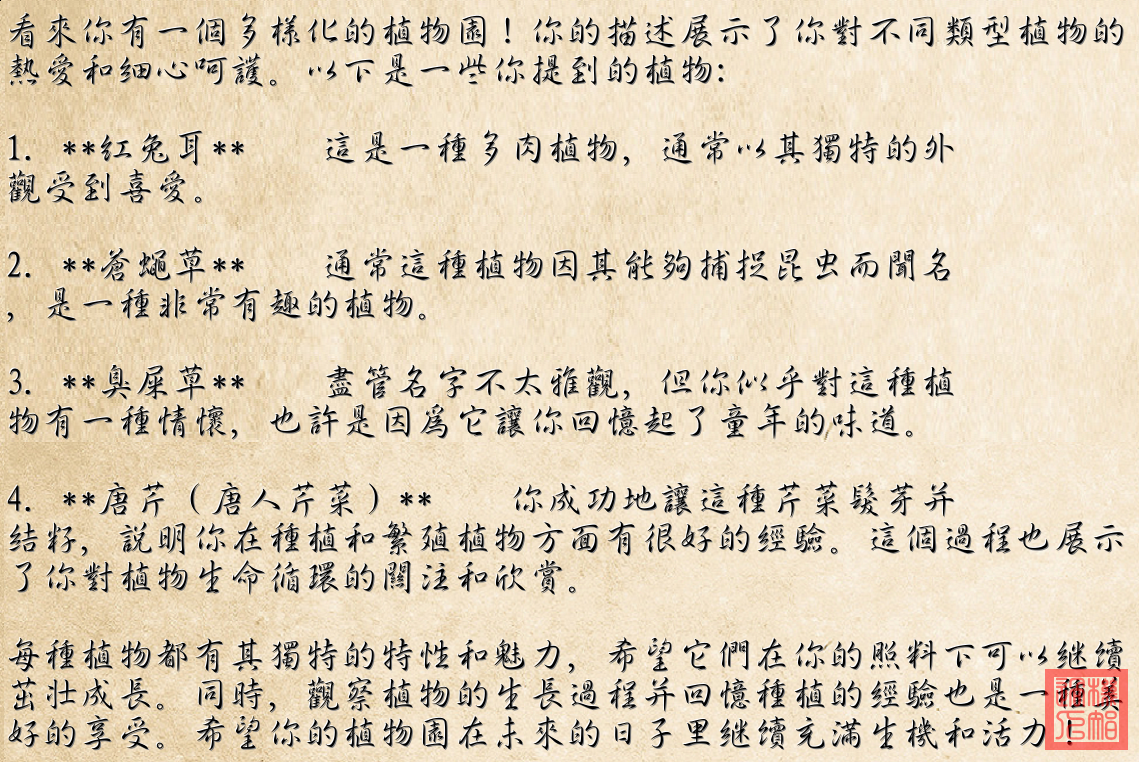 看來你有一個多樣化的植物園！你的描述展示了你對不同類型植物的
熱愛和細心呵護。以下是一些你提到的植物:
1. **紅兔耳** 這是一種多肉植物，通常以其獨特的外
觀受到喜愛。
2. **蒼蠅草** 通常這種植物因其能夠捕捉昆虫而聞名
，是一種非常有趣的植物。
3. **臭屎草** 盡管名字不太雅觀，但你似乎對這種植
物有一種情懷，也許是因為它讓你回憶起了童年的味道。
4. **唐芹（唐人芹菜）** 你成功地讓這種芹菜髮芽并
結籽，説明你在種植和繁殖植物方面有很好的經驗。這個過程也展示
了你對植物生命循環的關注和欣賞。
每種植物都有其獨特的特性和魅力，希望它們在你的照料下可以继續
茁壯成長。同時，觀察植物的生長過程并回憶種植的經驗也是一種美
好的享受。希望你的植物園在未來的日子里继續充滿生機和活力！